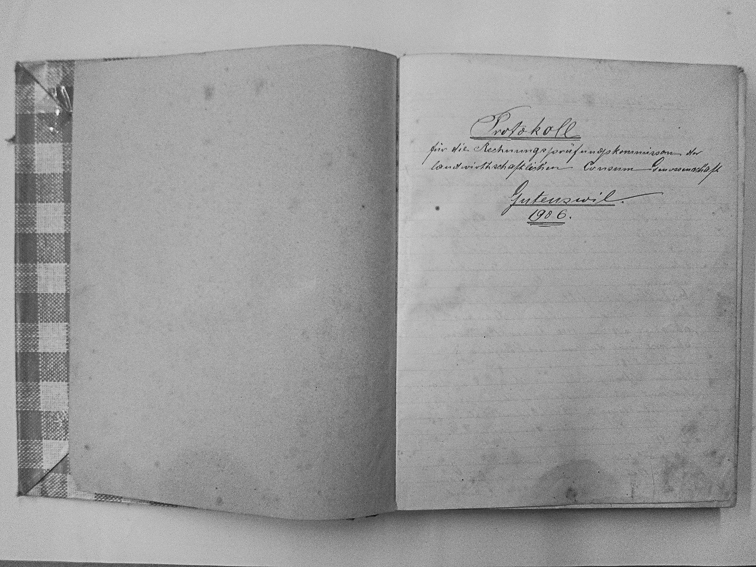 Protokoll
für die Rechnungsprüfungskommission der
landwirthschaftlichen Consum Genossenschaft
Gutenswil.
1906.